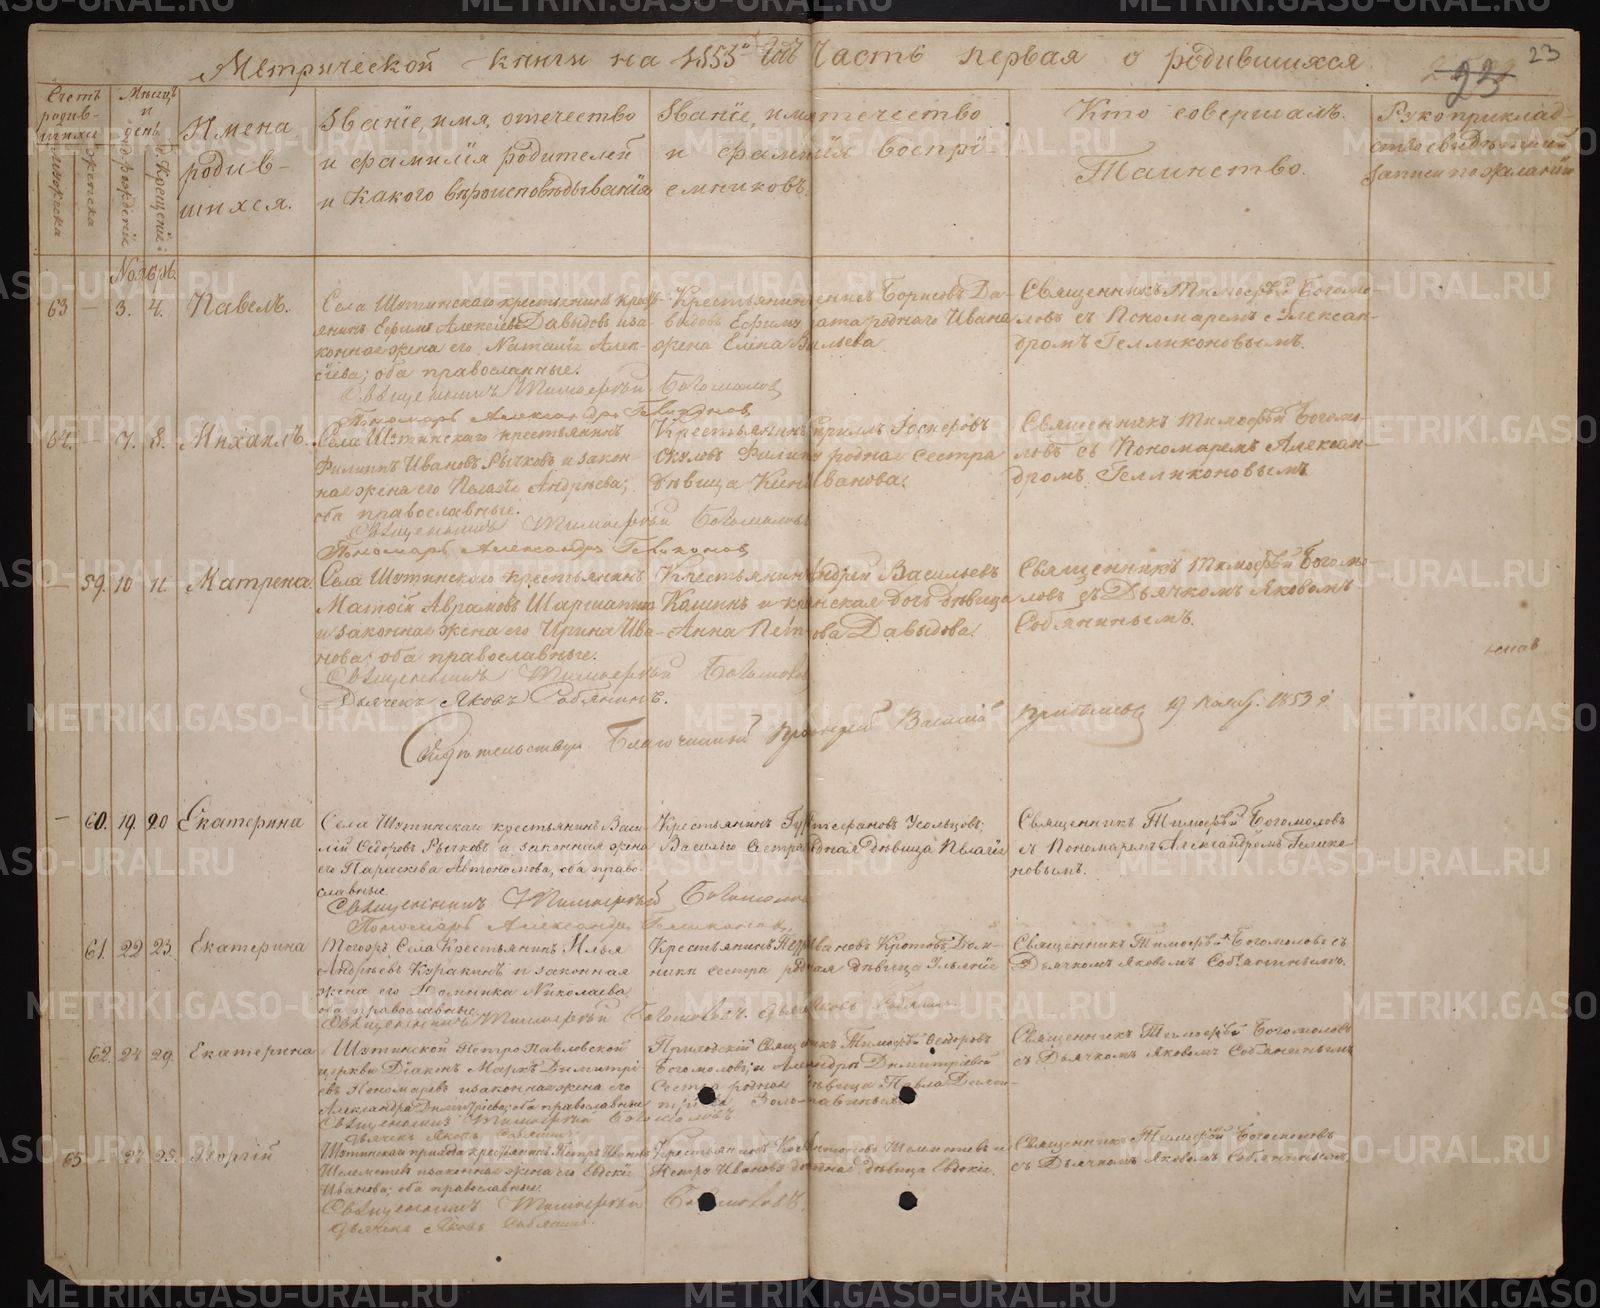 Метрической книги на 1853й годъ Часть первая о родившихся.
23
Счетъ родив-шихся
мужеска
женска
Мѣсяцъ и день
рожденія
Крещенія
Имена родив-шихся.
Званіе, имя, отечество
и фамилія родителей
и какого вѣроисповѣдыванія
Званіе, имя отечество
и фамилія воспрі-
емниковъ.
Кто совершалъ
Таинство.
Рукоприклад-
ство свидѣтелей
записи по желанію
Ноябрь.
63 — 3. 4. Павелъ.
Села Шутинскаго крестьянинъ
Ефимъ Алексѣевъ Давыдовъ и за-
конная жена его Наталія Алек-
сѣева; оба православные.
Священникъ Тимофей Богомоловъ
Пономарь Александръ Геликоновъ
Крестьянинъ Борисовъ Да-
выдовъ Ефима брата роднаго Ивана
жена Елена Васильева
Священникъ Тимофѣй Богомо-
ловъ съ Пономаремъ Алексан-
дромъ Гелликоновымъ.
64. — 7. 8. Михаилъ.
Села Шутинскаго крестьянинъ
Филиппъ Ивановъ Рычковъ и закон-
ная жена его Андрѣева;
оба православные.
Священникъ Тимофей Богомоловъ
Пономарь Александръ Геликоновъ
Крестьянинъ Кириллъ
Филиппа родная сестра
дѣвица Иванова.
Священникъ Тимофѣй Богомо-
ловъ съ Пономаремъ Алексан-
дромъ Гелликоновымъ
— 59. 10 11. Матрена.
Села Шутинскаго крестьянинъ
Матфій Аврамовъ
и законная жена его Ирина Ива-
нова; оба православные.
Священникъ Тимофей Богомоловъ
Дьячекъ Яковъ Собянинъ.
Крестьянинъ Андрей Васильевъ
Кашинъ и дочь дѣвица
Анна Петрова Давыдова.
Священникъ Тимофѣй Богомо-
ловъ съ Дьячкомъ Яковомъ
Собянинымъ.
Свидѣтельствовалъ Благочинный Василій 19 Нояб. 1853 г.
— 60. 19. 20 Екатерина
Села Шутинскаго крестьянинъ Васи-
лій Ѳедоровъ Рычковъ и законная жена
его Параскева Автономова, оба право-
славные
Священникъ Тимофей Богомоловъ
Пономарь Александръ Геликоновъ
Крестьянинъ Усольцовъ;
Василья сестра родная дѣвица Пелагія
Священникъ Тимофѣй Богомоловъ
съ Пономаремъ Александромъ Гелико-
новымъ.
61. 22 23. Екатерина
Тогоже Села Крестьянинъ Илья
Андрѣевъ Куракинъ и законная
жена его Домника Николаева
оба православные.
Священникъ Тимофей Богомоловъ. Дьячекъ Яковъ Собянинъ
Крестьянинъ Ивановъ Кротовъ, Дом-
ники сестра родная дѣвица Ульянія
Священникъ Тимофѣй Богомоловъ съ
Дьячкомъ Яковомъ Собянинымъ.
62. 24 29. Екатерина
Шутинской Петро Павловской
церкви Діаконъ Маркъ Димитрі-
евъ Пономаревъ и законная жена его
Александра Димитріева; оба православные
Священникъ Тимофей Богомоловъ
Дьячекъ Яковъ Собянинъ
Приходскій Священникъ Тимофѣй Ѳедоровъ
Богомоловъ; и Александры Димитріевой
Сестра родная дѣвица Павла
Священникъ Тимофѣй Богомоловъ
съ Дьячкомъ Яковомъ Собянинымъ
65 — 24 25. Георгій
Шутинскаго прихода крестьянинъ Петръ Ивановъ
и законная жена его Евдокія
Иванова; оба православные.
Священникъ Тимофей Богомоловъ.
Дьячекъ Яковъ Собянинъ.
Крестьянинъ
Петра Иванова дѣвица Евдокія.
Священникъ Тимофѣй Богомоловъ
съ Дьячкомъ Яковомъ Собянинымъ
METRIKI.GASO-URAL.RU